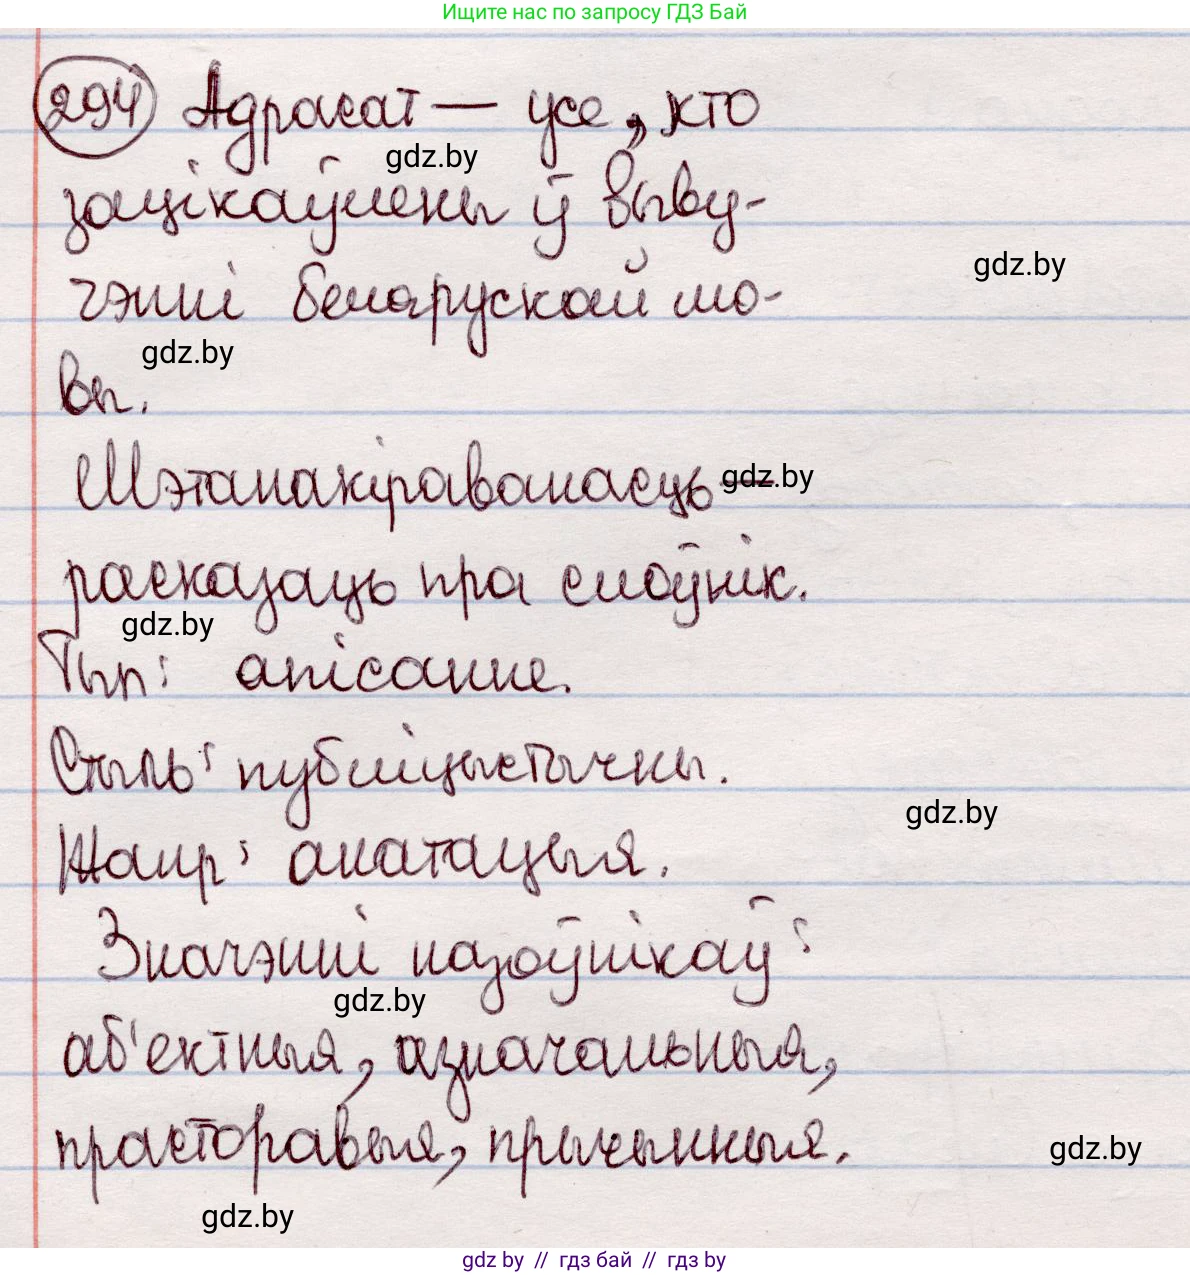 Ищите нас по запросу ГДЗ Бай
294 Адрасат — усе, кто
gdz.by
зацікаўлены ў выву-
gdz.by
чэнні беларускай мо-
gdz.by
вы.
Мэтанакіраванасць —
gdz.by
расказаць пра слоўнік.
gdz.by
Тып: апісанне.
Стыль: публіцыстычны.
gdz.by
Жанр: анатацыя.
Значэнні назоўнікаў:
gdz.by
аб'ектныя, азначальныя,
прасторавыя, прычынныя.
gdz.by
gdz.by
gdz by // гдз бай // гдз by